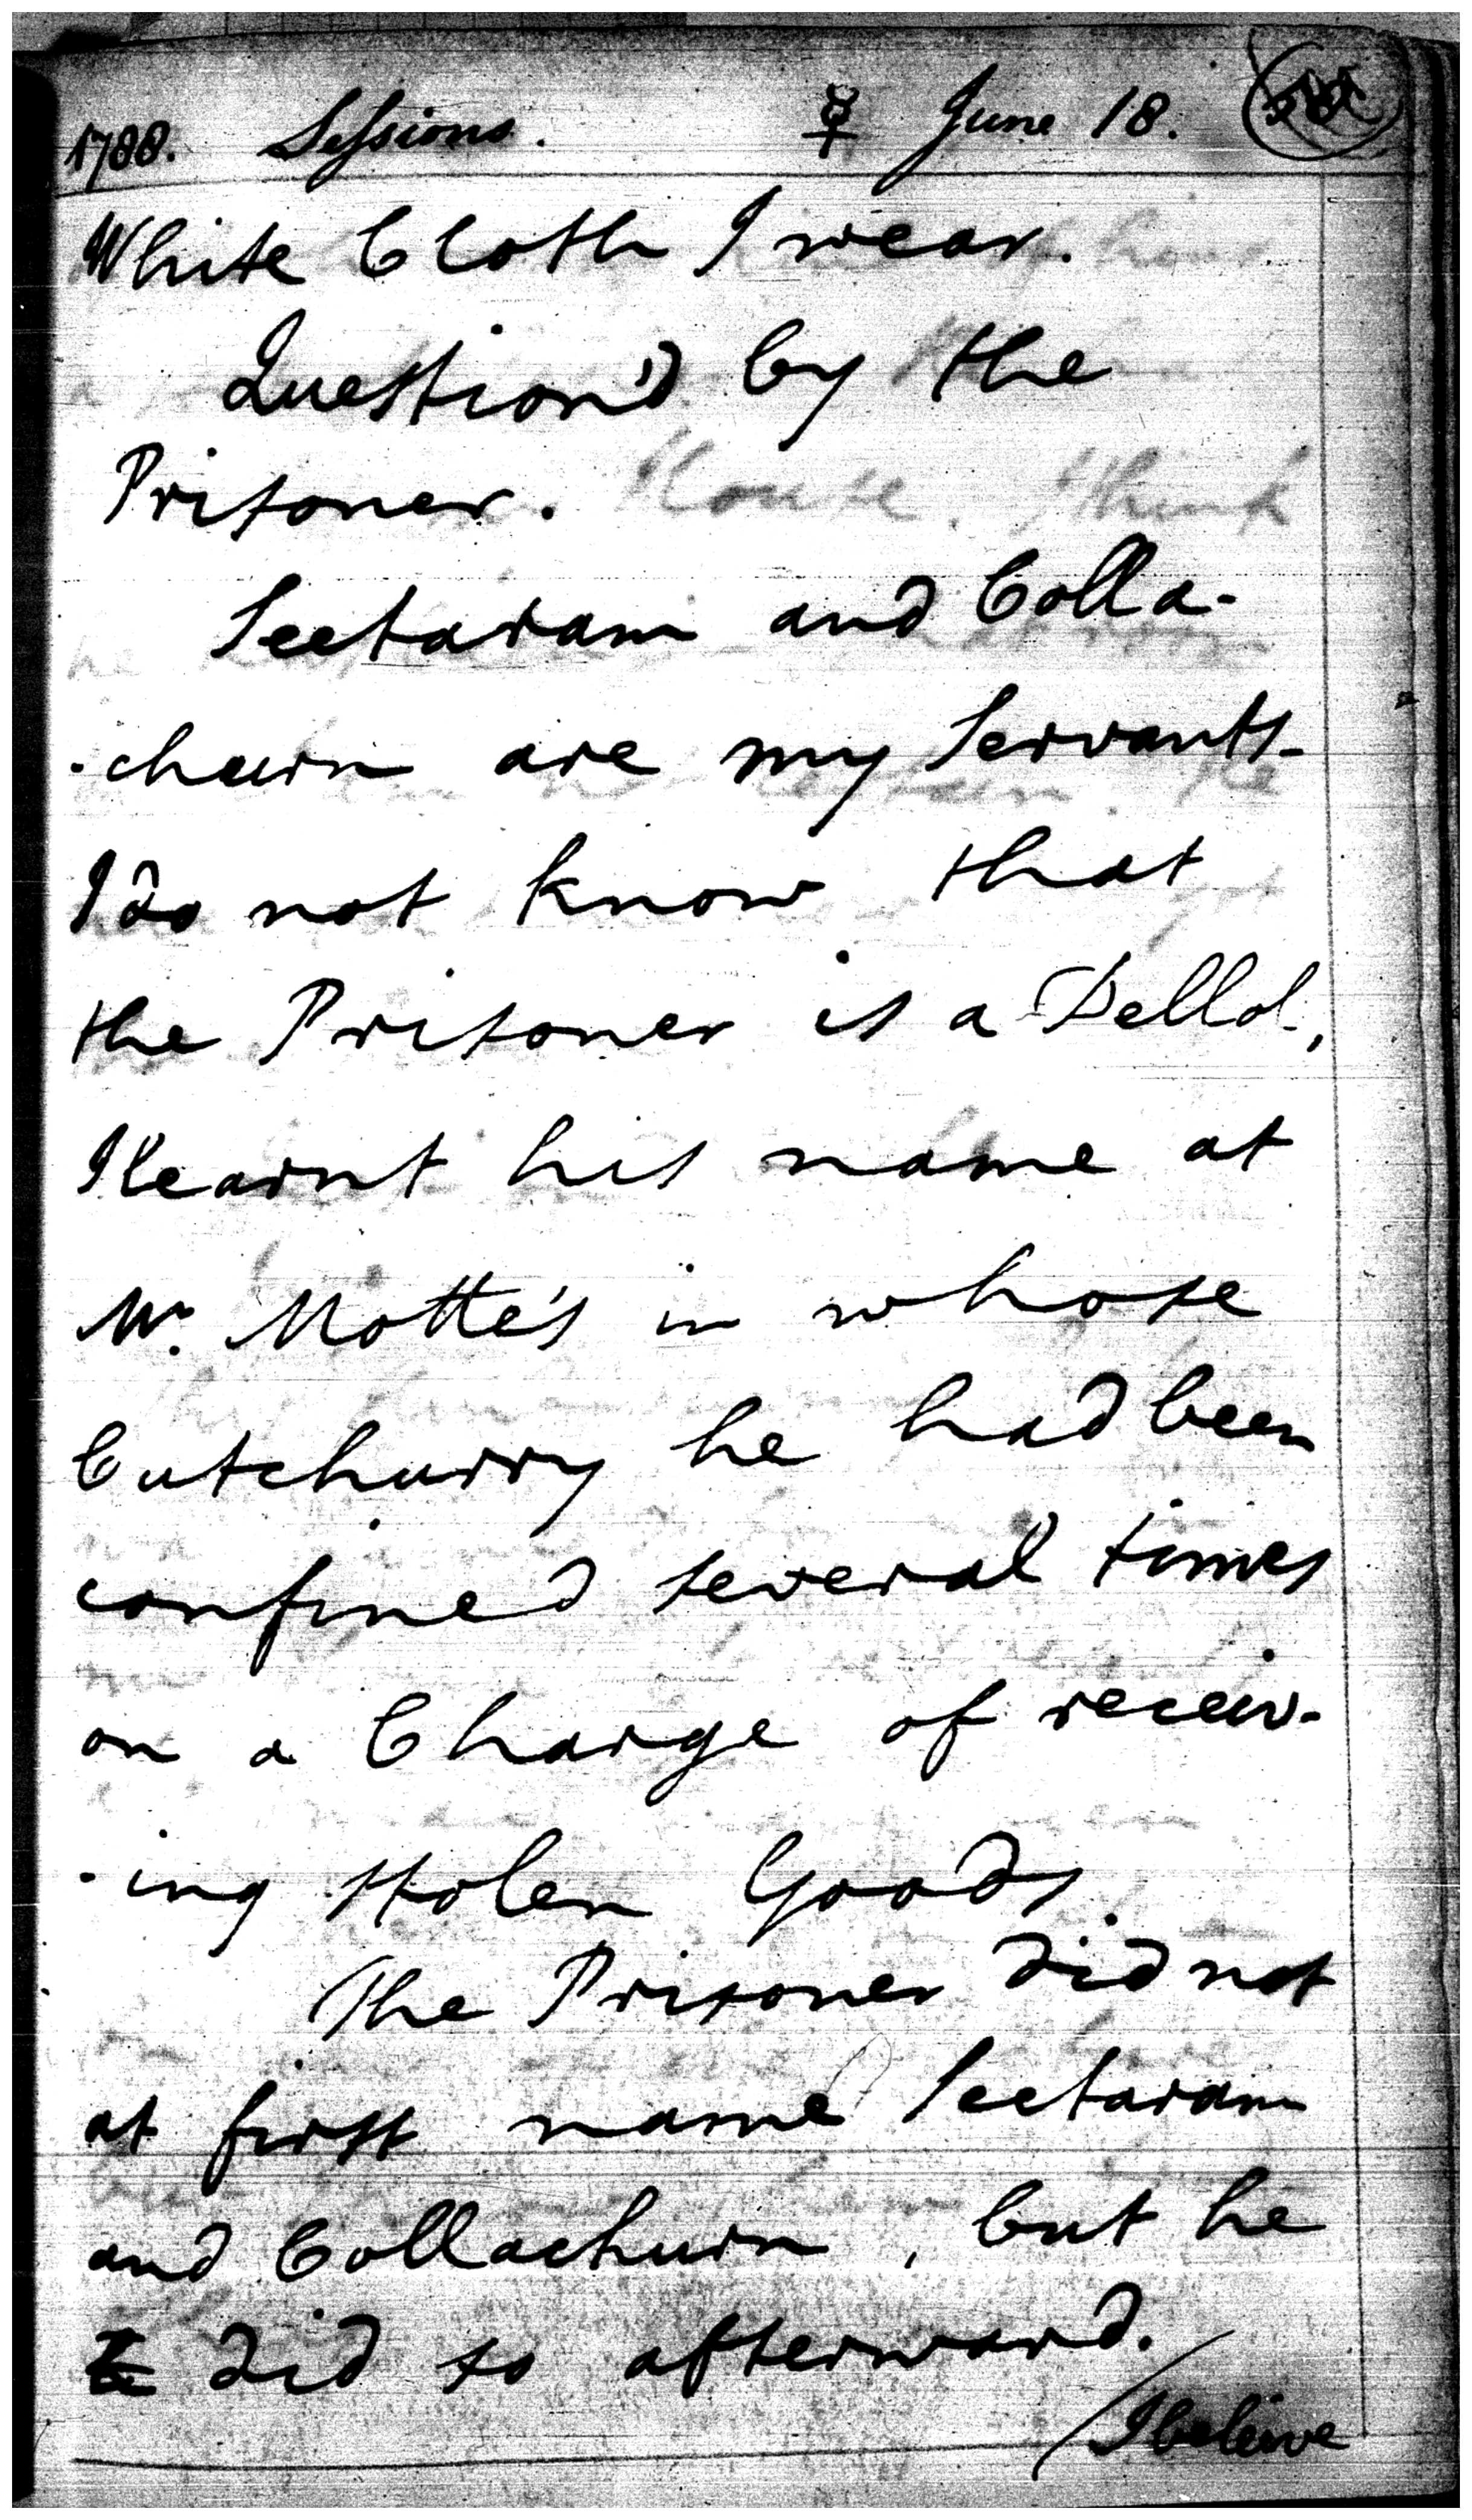 1788. Sessions. ☿ June 18.
White Cloth I wear.
Question'd by the
Prisoner.
Seetaram and Colla-
-churn are my Servants-
I do not know that
the Prisoner is a Dellol,
I learnt his name at
Mr. Motte's in whose
Cutchurry he had been
confined several times
on a Charge of receiv-
-ing stolen Goods
The Prisoner did not
at first name Seetaram
and Collachurn, but he
did so afterward.
/I beleive